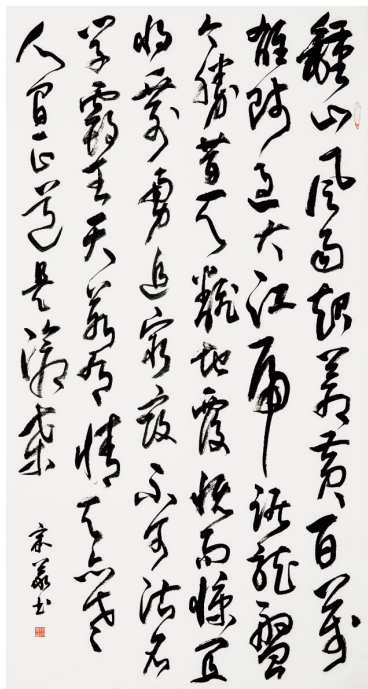 鍾山風雨起蒼黃百萬
雄師過大江虎踞龍盤
今勝昔天翻地覆慨而慷宜
將剩勇追窮寇不可沽名
學霸王天若有情天亦老
人間正道是滄桑